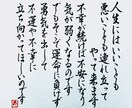 人生にはいいことも
悪いことも連れ立って
やって来ます
不幸が続けば不安になり
気が弱くなるのです
でも
勇気を出し
不運や不幸に
立ち向かってほしいのです